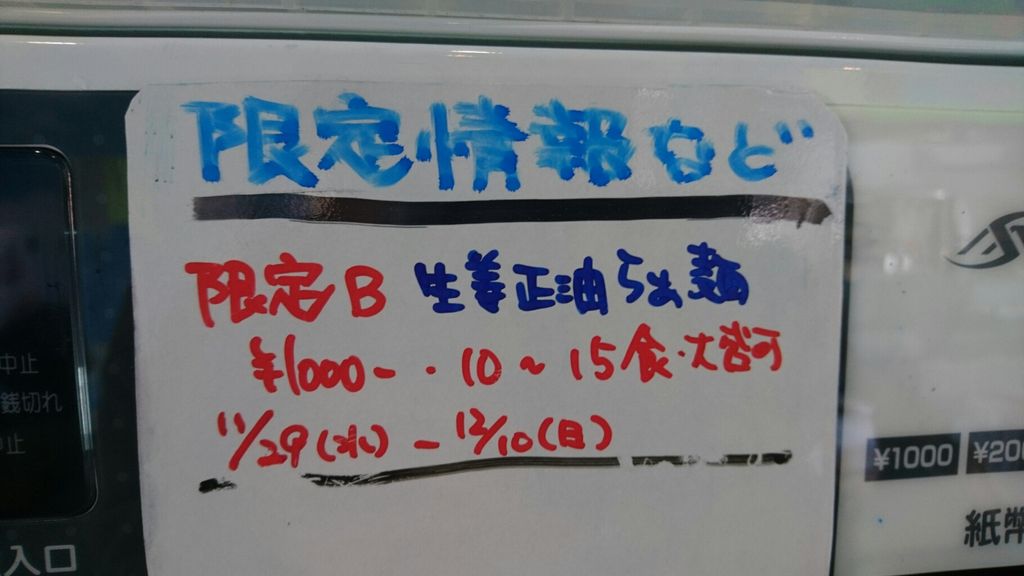 限定情報など
限定B 生姜正油らぁ麺
¥1000-・10～15食・大盛可
11/29(水)-12/10(日)
中止
銭切れ
中止
入口
¥1000
¥200
紙幣